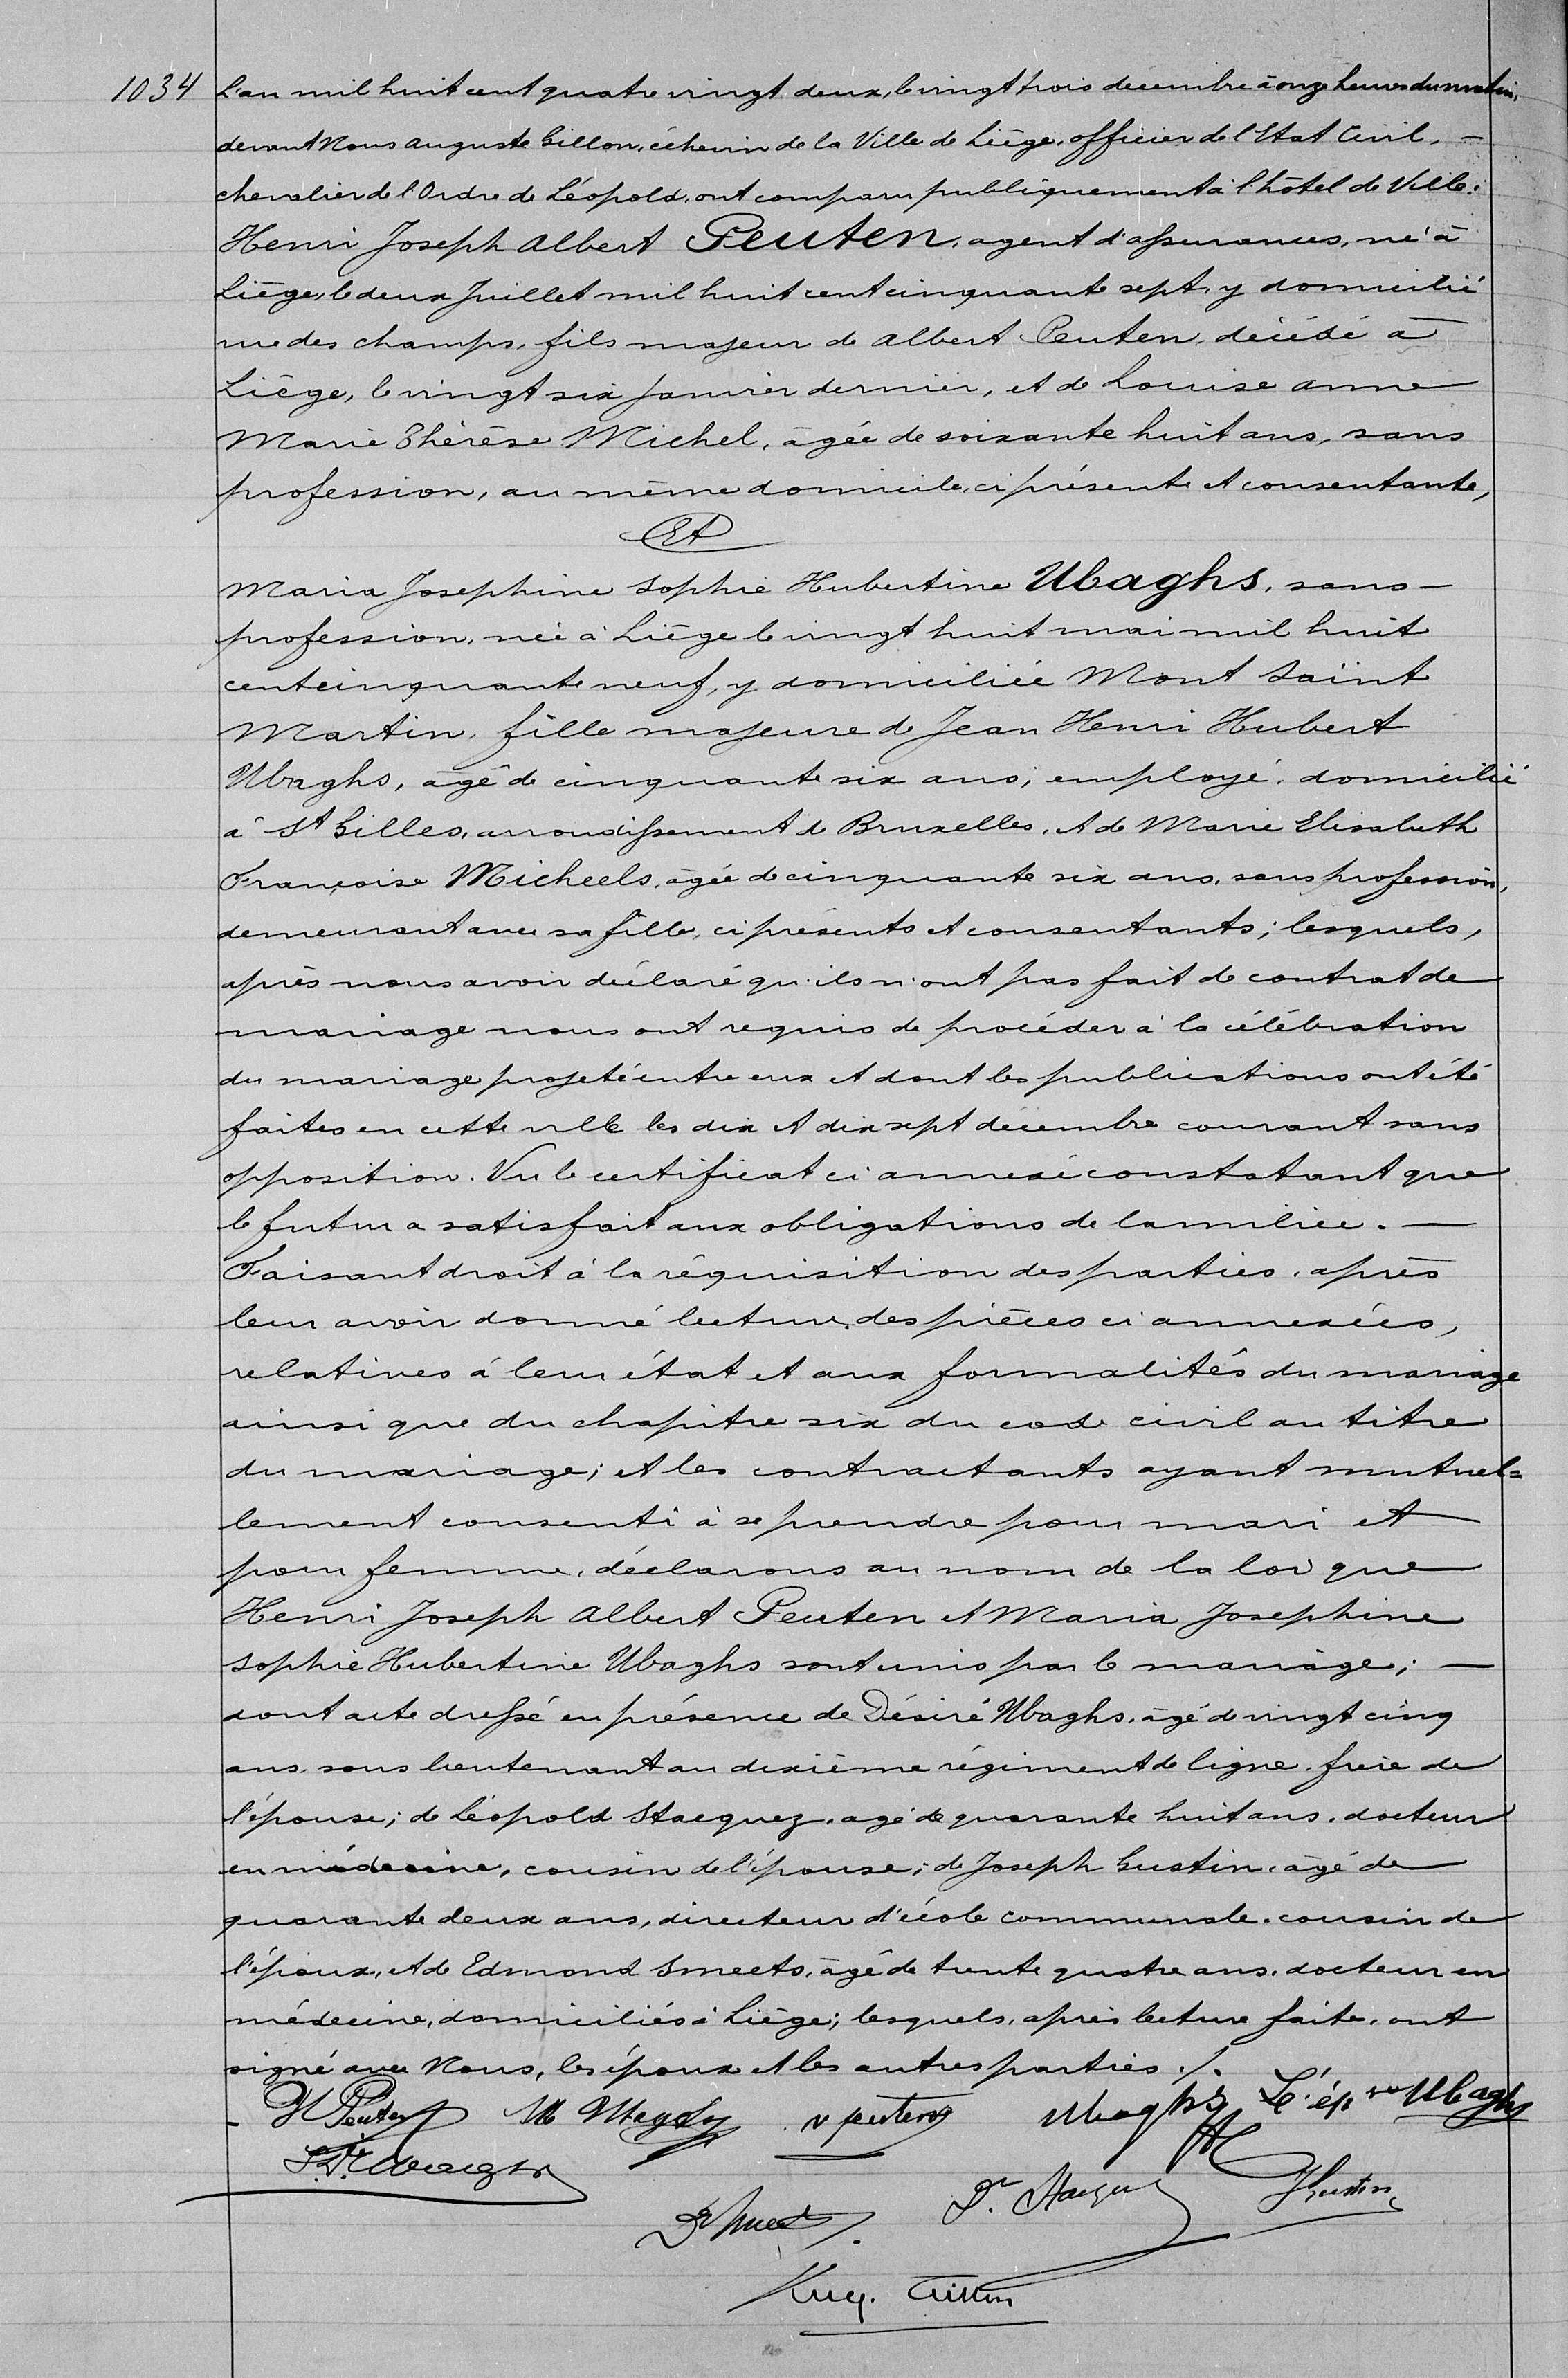 1034 L'an mil huit cent quatre vingt deux, le vingt trois décembre à onze heures du matin,
devant Nous Auguste Gillon, échevin de la Ville de Liège, officier de l'Etat Civil, —
chevalier de l'Ordre de Léopold, ont comparu publiquement à l'hôtel de Ville:
Henri Joseph Albert Peuten, agent d'assurances, né à
Liège, le deux Juillet mil huit cent cinquante sept, y domicilié
rue des champs, fils majeur de Albert Peuten, décédé à
Liège, le vingt six janvier dernier, et de Louise Anne
Marie Thérèse Michel, âgée de soixante huit ans, sans
profession, au même domicile, ci présente et consentante,
Et
Maria Josephine Sophie Hubertine Ubaghs, sans —
profession, née à Liège le vingt huit mai mil huit
cent cinquante neuf, y domiciliée Mont Saint
Martin, fille majeure de Jean Henri Hubert
Ubaghs, âgé de cinquante six ans, employé, domicilié
à St Gilles, arrondissement de Bruxelles, et de Marie Elisabeth
Françoise Micheels, âgée de cinquante six ans, sans profession,
demeurant avec sa fille, ci présents et consentants; lesquels,
après nous avoir déclaré qu'ils n'ont pas fait de contrat de
mariage nous ont requis de procéder à la célébration
du mariage projeté entre eux et dont les publications ont été
faites en cette ville les dix et dix sept décembre courant sans
opposition. Vu le certificat ci annexé constatant que
le futur a satisfait aux obligations de la milice. —
Faisant droit à la réquisition des parties, après
leur avoir donné lecture des pièces ci annexées,
relatives à leur état et aux formalités du mariage
ainsi que du chapitre six du code civil au titre
du mariage; et les contractants ayant mutuel=
lement consenti à se prendre pour mari et
pour femme, déclarons au nom de la loi que
Henri Joseph Albert Peuten et Maria Josephine
Sophie Hubertine Ubaghs sont unis par le mariage; —
dont acte dressé en présence de Désiré Ubaghs, âgé de vingt cinq
ans, sous lieutenant au dixième régiment de ligne, frère de
l'épouse; de Léopold Stacquez, agé de quarante huit ans, docteur
en médecine, cousin de l'épouse; de Joseph Gustin, âgé de
quarante deux ans, directeur d'école communale, cousin de
l'époux, et de Edmond Smeets, âgé de trente quatre ans, docteur en
médecine, domiciliés à Liège; lesquels, après lecture faite, ont
signé avec Nous, les époux et les autres parties ./.
H Peuten M Ubaghs v peuten Ubaghs Ubaghs
Ubaghs
Dr Smeets Dr. Stacquez J Gustin
Aug. Gillon